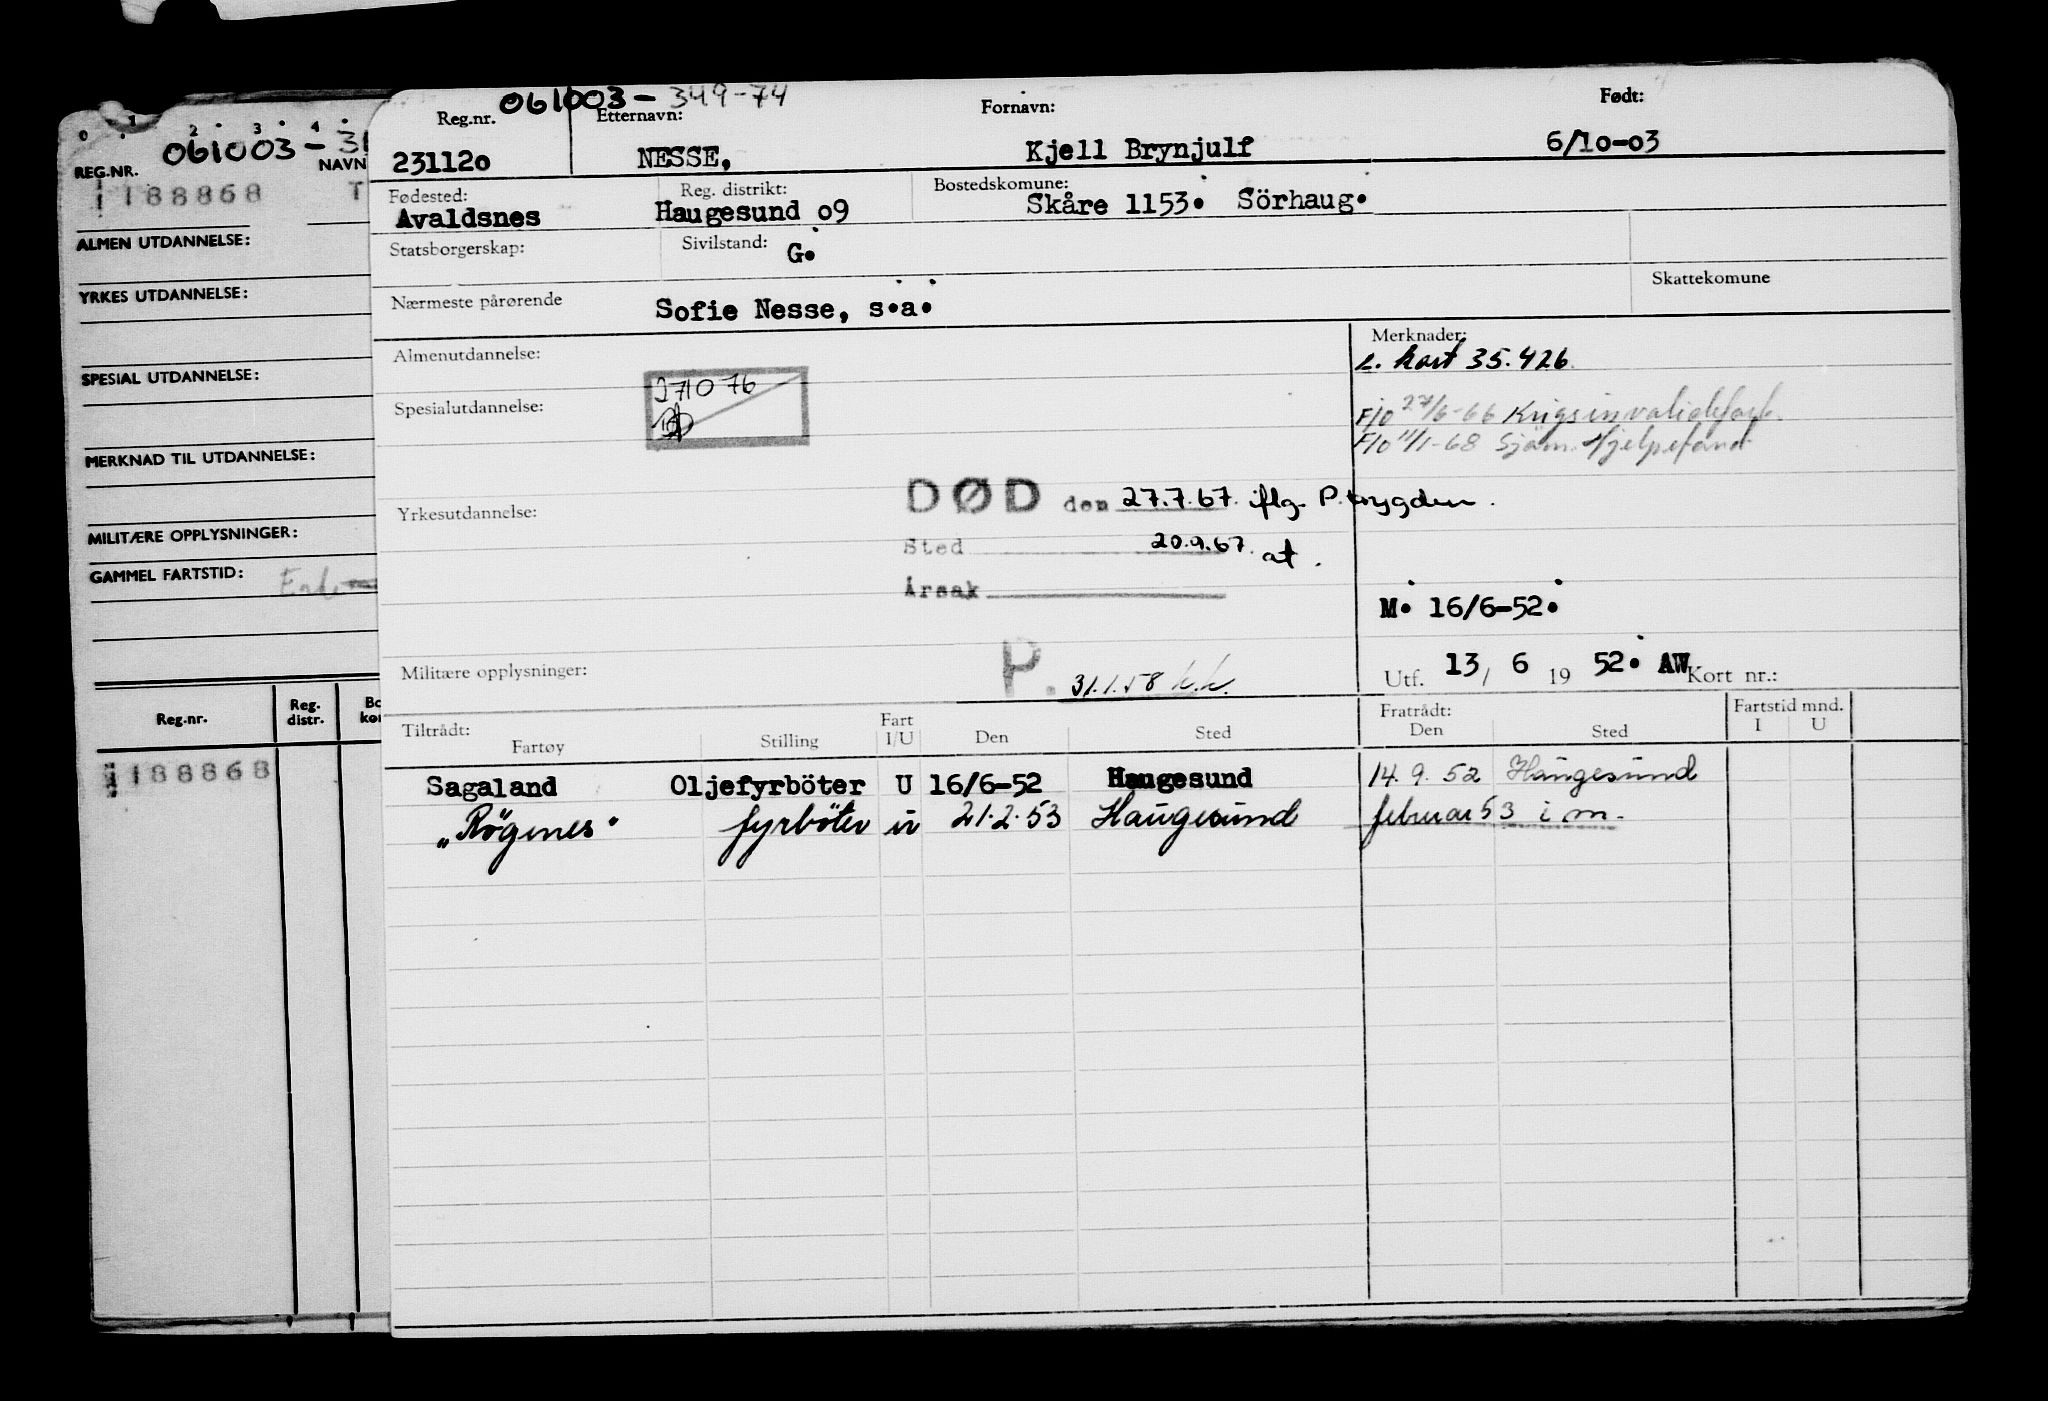 0 1 2 3 4
061003-
REG.NR. NAVN
188868
ALMEN UTDANNELSE:
YRKES UTDANNELSE:
SPESIAL UTDANNELSE:
MERKNAD TIL UTDANNELSE:
MILITÆRE OPPLYSNINGER:
GAMMEL FARTSTID:
Reg.nr. Reg. distr.
188868
061003-349-74
Reg.nr. Etternavn: Fornavn: Født:
23112o NESSE, Kjell Brynjulf 6/10-03
Fødested: Reg. distrikt: Bostedskomune:
Avaldsnes Haugesund o9 Skåre 1153. Sörhaug.
Statsborgerskap: Sivilstand: G.
Skattekomune
Nærmeste pårørende Sofie Nesse, s.a.
Almenutdannelse: Merknader:
kart 35.426.
271076
Spesialutdannelse: F/o 27/6-66 Krigsinvalidesak.
F/o 11/1-68 Sjøm. Hjelpefond
DØD den 27.7.67. iflg. P.trygden.
Yrkesutdannelse:
Sted 20.9.67. at.
Årsak
M. 16/6-52.
Militære opplysninger: P. 31.1.58 h.h.
Utf. 13/ 6 19 52. AW Kort nr.:
Tiltrådt: Fratrådt: Fartstid mnd.
Fartøy Stilling Fart I/U Den Sted Den Sted I U
Sagaland Oljefyrböter U 16/6-52 Haugesund 14.9.52 Haugesund
"Rögenes" fyrböter u 21.2.53 Haugesund februar 53 i m.